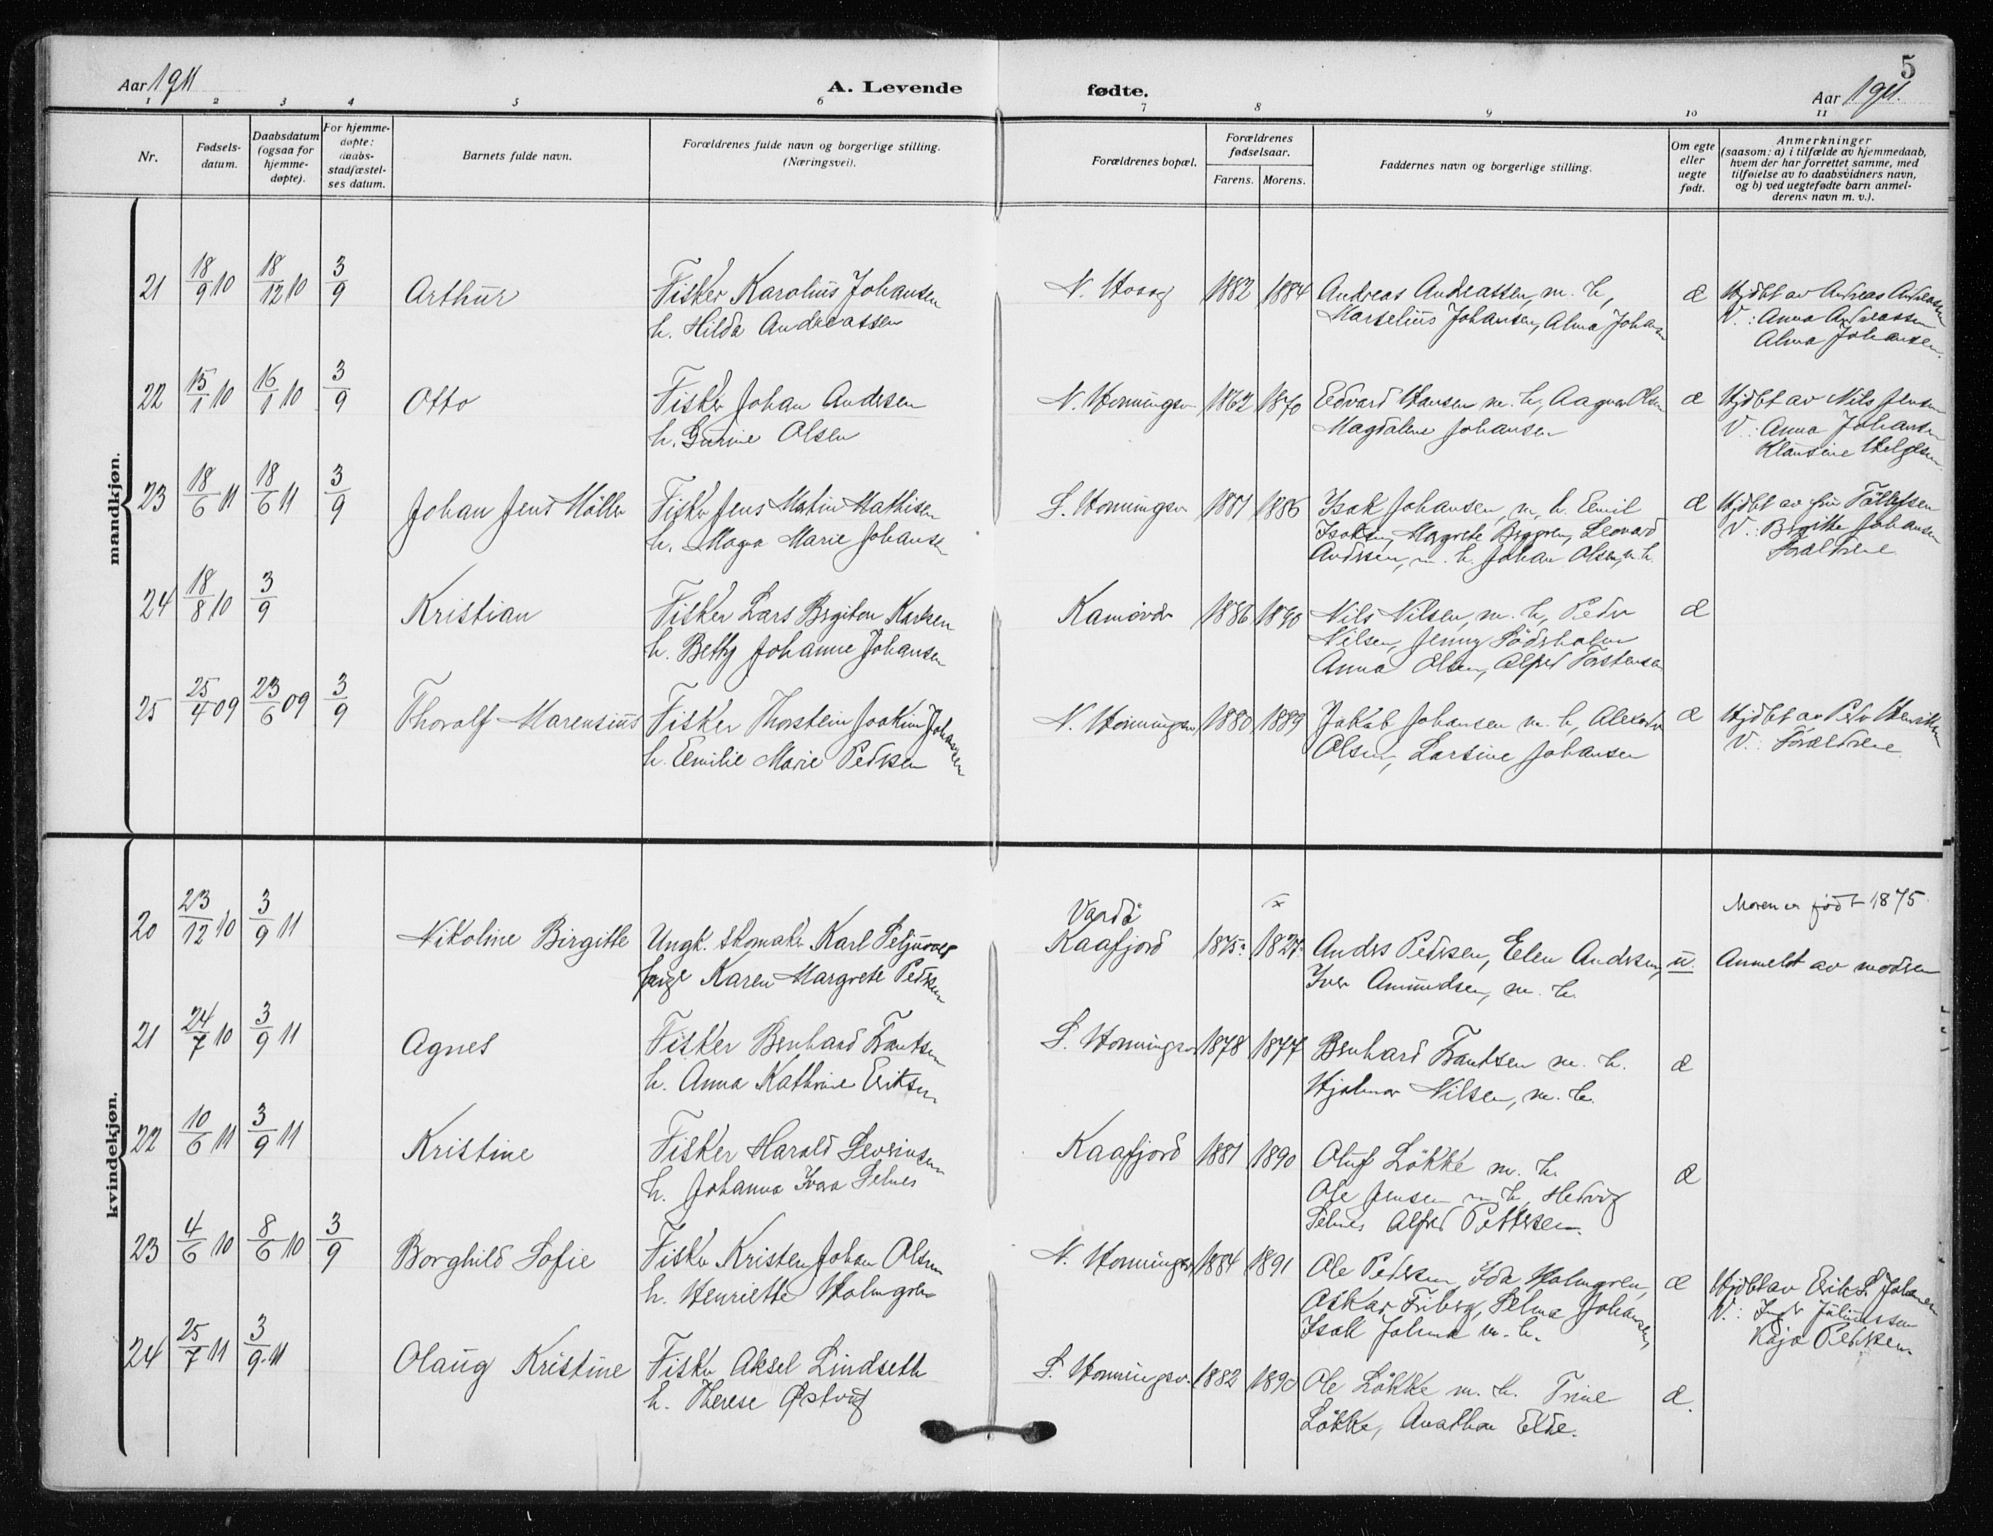 5
Aar 1911
A. Levende fødte.
Aar 1911.
1 2 3 4 5 6 7 8 9 10 11
Nr.
Fødsels-
datum.
Daabsdatum
(ogsaa for
hjemme-
døpte).
For hjemme-
døpte:
daabs-
stadfæstel-
ses datum.
Barnets fulde navn.
Forældrenes fulde navn og borgerlige stilling.
(Næringsvei).
Forældrenes bopæl.
Forældrenes
fødselsaar.
Farens. Morens.
Faddernes navn og borgerlige stilling.
Om egte
eller
uegte
født.
Anmerkninger
(saasom: a) i tilfælde av hjemmedaab,
hvem der har forrettet samme, med
tilføielse av to daabsvidners navn,
og b) ved uegtefødte barn anmel-
derens navn m. v.).
mandkjøn.
21 18/9 10 18/12 10 3/9 Arthur Fisker Karolius Johansen N. Vaag 1882 1884 Andreas Andreassen, m. h, æ Hjdbt av Andreas Andreassen
h. Hilda Andreassen Marselius Johansen, Alma Johansen V.: Anna Andreassen
Alma Johansen.
22 15/1 10 16/1 10 3/9 Otto Fisker Johan Andersen N. Honningsv 1862 1870 Edvard Hansen m. h, Olsen æ Hjdbt av Nils Jensen
h. Gurine Olsen Magdalene Johansen V.: Anna Johansen
Klausine Helgesen
23 18/6 11 18/6 11 3/9 Johan Jens Møller Fisker Jens Martin Mathisen S. Honningsv 1881 1886 Isak Johansen, m, h. Emil æ Hjdbt av fru Tollefsen
h. Maga Marie Johansen Isaksen, Margrete Berggren, Leonard V.: Birgitte Johansen
Andersen, m. h. Johan Olsen, m. h. Forældrene
24 18/8 10 3/9 Kristian Fisker Lars Karlsen Kamøvær 1886 1890 Nils Nilsen, m. h, Peder æ
h. Betty Johanne Johansen Nilsen, Jenny Söderholm
Anna Olsen, Alfred Torstensen
25 25/4 09 23/6 09 3/9 Thoralf Marensius Fisker Thorstein Joakim Johansen N. Honningsv 1880 1889 Jakob Johansen m. h, æ Hjdbt av Peder Henriksen
h. Emilie Marie Pedersen Olsen, Larsine Johansen V.: Forældrene
kvindekjøn.
Vardö x Moren er født 1875.
20 23/12 10 3/9 11 Nikoline Birgitte Ungk. skomaker Karl Kaafjord 1875 Anders Pedersen, Elen Andersen, u. Anmeldt av modren
pige Karen Margrete Pedersen Iver Amundsen, m. h.
21 24/7 10 3/9 11 Agnes Fisker Bernhard Frantsen S. Honningsv 1878 1877 Bernhard Frantsen m. h. æ
h. Anna Kathrine Eriksen Hjalmar Nilsen, m. h.
22 10/6 11 3/9 11 Kristine Fisker Harald Severinsen Kaafjord 1881 1890 Oluf Løkke m. h. æ
h. Johanna Ivara Selnes Ole Jensen m h, Hedvig
Selnes Alfred Pettersen.
23 4/6 10 8/6 10 3/9 Borghild Sofie Fisker Kristen Johan Olsen N. Honningsv 1884 1891 Ole Pedersen, Ida Holmgren, æ Hjdbt av Erik S Johansen
h. Henriette Holmgren Askar Friberg, Selma Johansen, V.: Inga
Isak m. h. Kaja Pedersen
24 25/7 11 3/9 11 Olaug Kristine Fisker Aksel Lindseth S. Honningsv. 1882 1890 Ole Løkke m. h. Trine æ.
h. Therese Østvig Løkke, Anathon Elde.